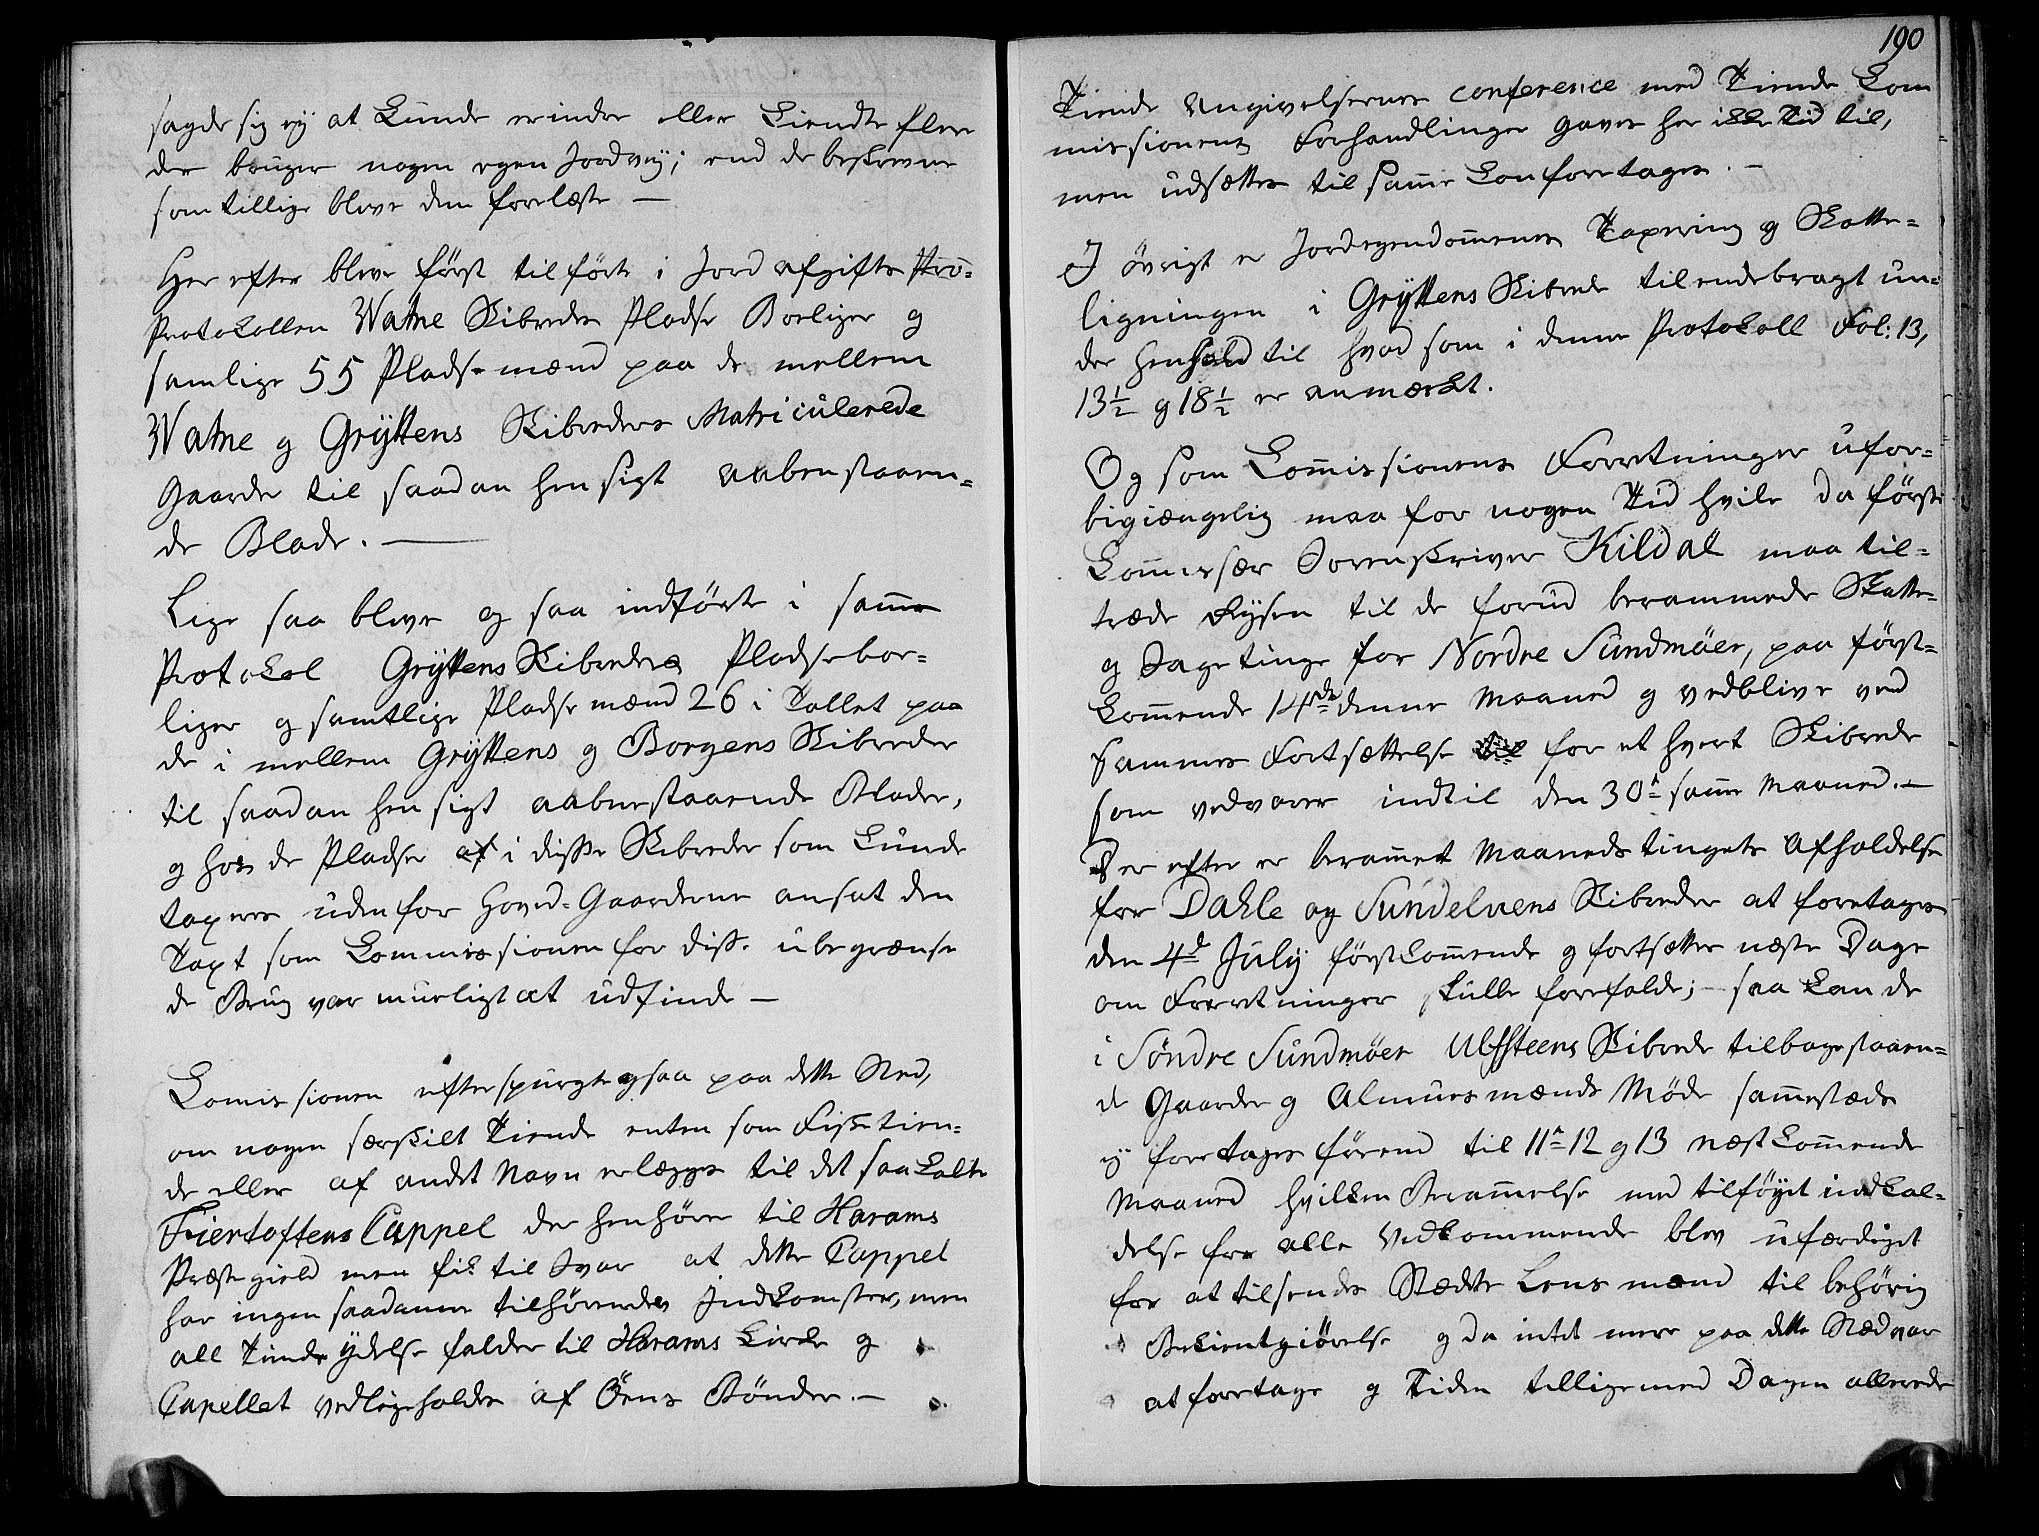 sagde sig ey at kunde erindre eller kiendte flere
der bruger nogen egen Jordvey; end de beskrevne
som tillige bleve dem forelæste —
Her efter bleve først tilførte i Jord afgifts Pro=
Protokollen Watne Skibredes Pladse Boeliger og
samlige 55 Pladsemænd paa de mellem
Watne og Gryttens Skibreders Matriculerede
Gaarde til saadan hensigt aabenstaaen=
de Blade. —
Lige saa bleve og saa indførte i samme
Protokol Gryttens Skibredes Pladseboe=
liger og samtlige Pladsemænd 26 i Tallet paa
de i mellem Gryttens og Borgens Skibreder
til saadan hensigt aabenstaaende Blade,
og hos de Pladser af i disse Skibreder som kunde
taxeres uden for Hoved=Gaardene ansat den
Taxt som Commissionen for diss. ubegrænse
de Brug var mueligt at udfinde —
Comissionen efterspurgte ogsaa paa dette Sted,
om nogen særskilt Tiende enten som Fisketien=
de eller af andet Navn erlægges til det saa kalte
Fiertoftens Cappel der henhører til Harams
Præstegield men fik til Svar at dette Cappel
har ingen saadanne tilhørende Indkomster, men
all Tiende ydelse falder til Harams Kirke og
Capellet vedligeholdes af Öens Bönder. —
190
Tiende Angivelsernes conference med Tiende Com
missionens Forhandlinger gaves her ikke Tid til,
men udsættes til samme kan foretages. —
I övrigt er Jordegendommenes Taxering og Skatte=
ligningen i Gryttens Skibrede tilendebragt un=
der henhold til hvad som i denne Protokoll Fol: 13,
13½ og 18½ er anmærkt.
Og som Commissionens Forretninger ufor=
bigiængelig maa for nogen Tid hvile da første
Commissær Sorenskriver Kildal maa til=
træde Reysen til de forud berammede Skatte=
og Sagetinge for Nordre Sundmöer, paa først=
kommende 14de denne Maaned og vedblive ved
sammes Fortsættelse til for et hvert Skibrede
som vedvarer indtil den 30te samme Maaned. —
Der efter er beramet Maanedstingets Afholdelse
for Dahle og Sundelvens Skibreder at foretages
den 4de July førstkommende og fortsættes næste Dage
om Forretninger skulle forefalde; — saa kan de
i Söndre Sundmöer Ulfsteens Skibrede tilbagestaaen=
de Gaarder og Almuesmænds Möde sammestæds
ey foretages förend til 11te 12 og 13 næstkommende
Maaned hvilken Berammelse med tilföyet indkal=
delse for alle Vedkommende blev ufærdiget
for at tilsendes Stædets Lensmænd til behörig
Bekientgiörelse og da intet mere paa dette Stæd var
at foretage og Tiden tilligemed Dagen allerede